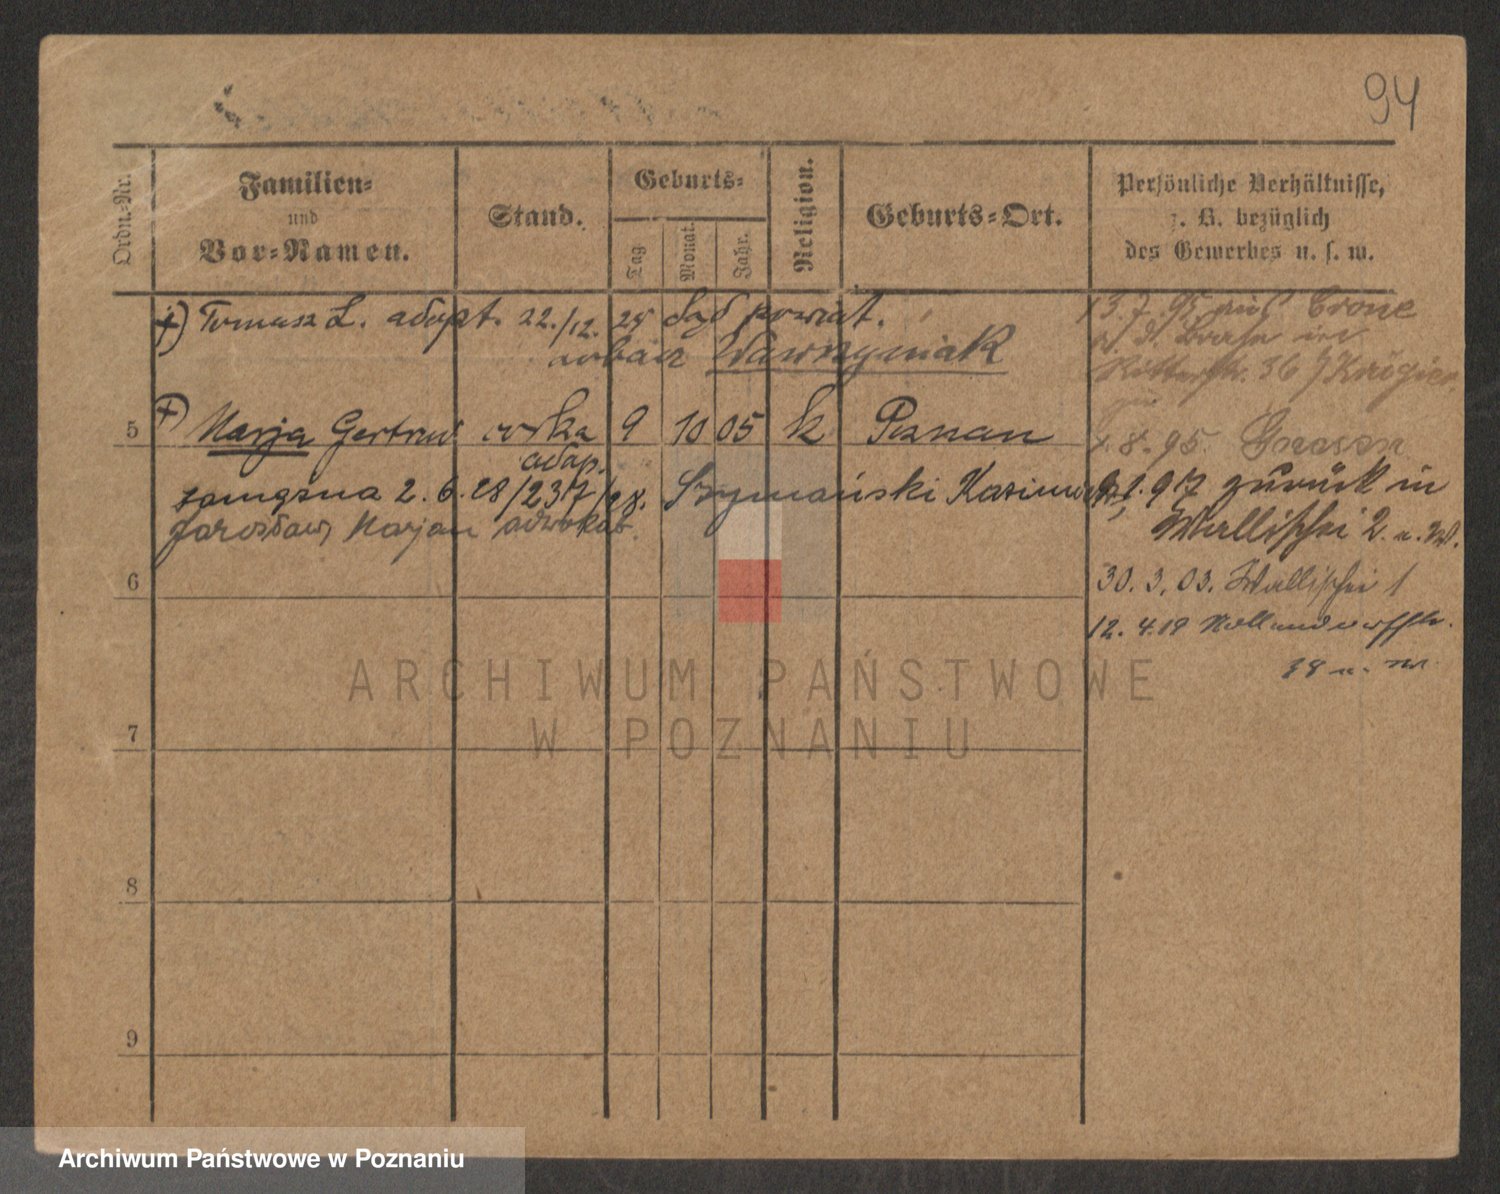 94
Ordn.-Nr.
Familien-
und
Vor-Namen.
Stand.
Geburts-
Tag
Monat.
Jahr.
Religion.
Geburts-Ort.
Persönliche Verhältnisse,
z. B. bezüglich
des Gewerbes u. s. w.
+) Tomasz L. adopt. 22./12. 25 Sąd powiat.
Wawrzyniak
+) 5 Marja Gertrud córka 9 10 05 k Poznan
adop.
zamężna 2. 6. 28/237/28. Szymański Kazimierz,
Jarosław, Marjan adwokat.
6
7
8
9
13.7.95 aus Crone
a. d. Brahe in
Ritterstr. 36 / Krögier
8.95. Gnesen
9.1.917 zurück in
Wallischei 2. u. W.
30. 3. 03. Wallischei 1
12. 4. 19
38
ARCHIWUM PAŃSTWOWE
W POZNANIU
Archiwum Państwowe w Poznaniu